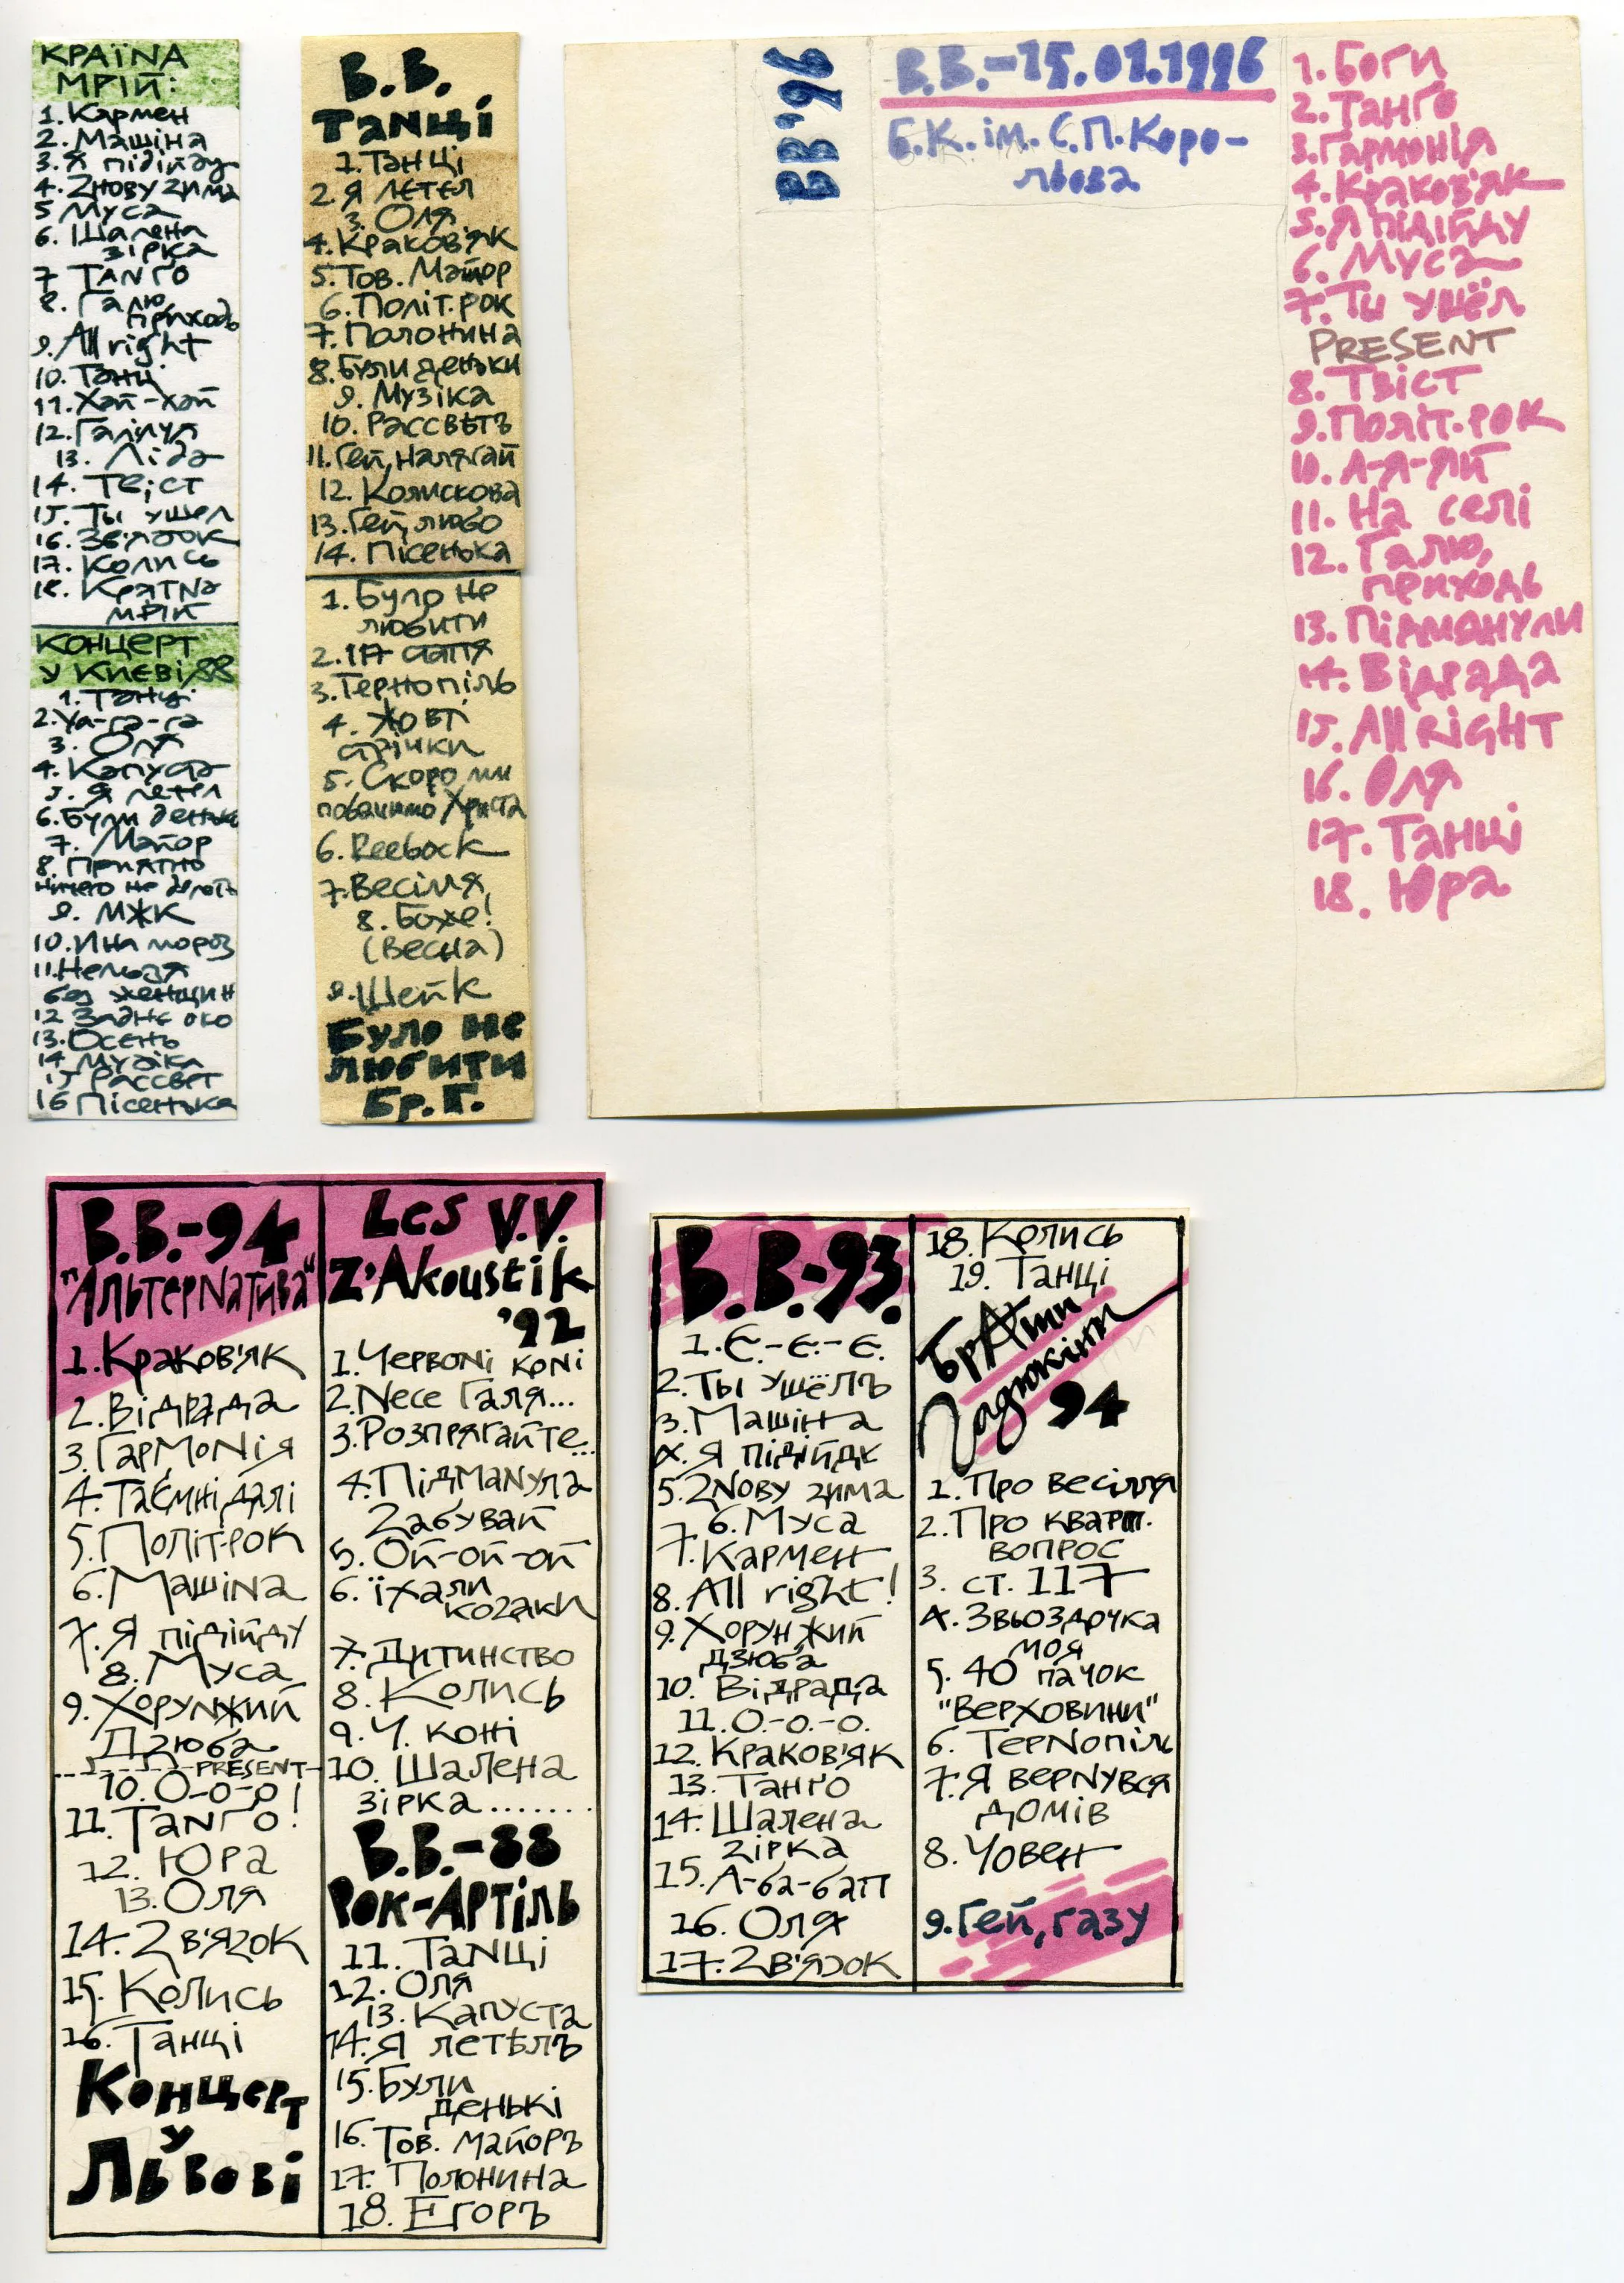 КРАЇНА
МРІЙ:
1. Кармен
2. Машіна
3. Я підійду
4. Zнову zима
5 Муса
6. Шалена
зірка
7 ТАNГО
8. Галю,
приходь
9. All right
10. Танці
11. Хай-хай
12. Галілуя
13. Ліда
14. Твіст
15. Ты ушел
16. Зв'язок
17. Колись
18. КраїNа
мрій
КОНЦЕРТ
У КИЄВІ/88
1. Танці
2. Уа-га-га
3. Оля
4. Капуста
5. Я летел
6. Були деньки
7. Майор
8. Приятно
ничего не делать
9. МЖК
10. И на мороз
11. Нельзя
без женщин
12 Заднє око
13. Осень
14 Музіка
15 Рассвет
16 Пісенька
В.В.
ТаNці
1. Танці
2. Я летел
3. Оля
4. Краков'як
5. Тов. Майор
6. Політ.рок
7. Полонина
8. Були деньки
9. Музіка
10. Рассвѣтъ
11. Гей, налягай
12. Колискова
13. Гей, любо
14. Пісенька
1. Було не
любити
2. 117 стаття
3. Тернопіль
4. Жовті
стрічки
5. Скоро ми
побачимо Христа
6. Reebock
7. Весілля
8. Боже!
(Весна)
9. Шейк
Було не
любити
Бр. Г.
ВВ'96
В.В.-15.01.1996
Б.К. ім. С.П. Коро-
льова
1. Боги
2. Танго
3. Гармонія
4. Краков'як
5. Я підійду
6. Муса
7. Ты ушёл
PRESENT
8. Твіст
9. Політ.рок
10. А-я-яй
11. На селі
12. Галю,
приходь
13. Підманули
14. Відрада
15. All RIGHT
16. Оля
17. Танці
18. Юра
В.В.-94
"АльтерNатива"
1. Краков'як
2. Відрада
3. ГармоNія
4. Таємні далі
5. Політ.рок
6. МашіNа
7. Я підійду
8. Муса
9. Хорунжий
Дzюба
PRESENT
10. О-о-о!
11. ТаNго!
12. Юра
13. Оля
14. Zв'яzок
15. Колись
16. Танці
Концерт
у
Львові
Les V.V.
Z'Akoustik
'92
1. ЧервоNі коNі
2. Nесе Галя...
3. Розпрягайте...
4. ПідмаNула
Zабувай
5. Ой-ой-ой
6. Їхали
коzаки
7. Дитинство
8. Колись
9. Ч. коні
10. Шалена
зірка.......
В.В.-88
Рок-Артіль
11. ТаNці
12. Оля
13. Капуста
14. Я летѣлъ
15. Були
денькі
16. Тов. майоръ
17. Полонина
18. Егоръ
В.В-93.
1. Є.-є.-є.
2. Ты ушёлъ
3. Машіна
4. Я підійдк
5. ZNову zима
6. Муса
7. Кармен
8. All right!
9. Хорунжий
Дзюба
10. Відрада
11. О.-о.-о.
12. Краков'як
13. Танґо
14. Шалена
zірка
15. А-ба-бап
16. Оля
17. Zв'яzок
18. Колись
19. Танці
БрАти
Гадюкіни
94
1. Про весілля
2. Про кварт.
вопрос
3. ст. 117
4. Звьоздочка
моя
5. 40 пачок
"Верховини"
6. ТерNопіль
7. Я верNувся
домів
8. Човен
9. Гей, газу